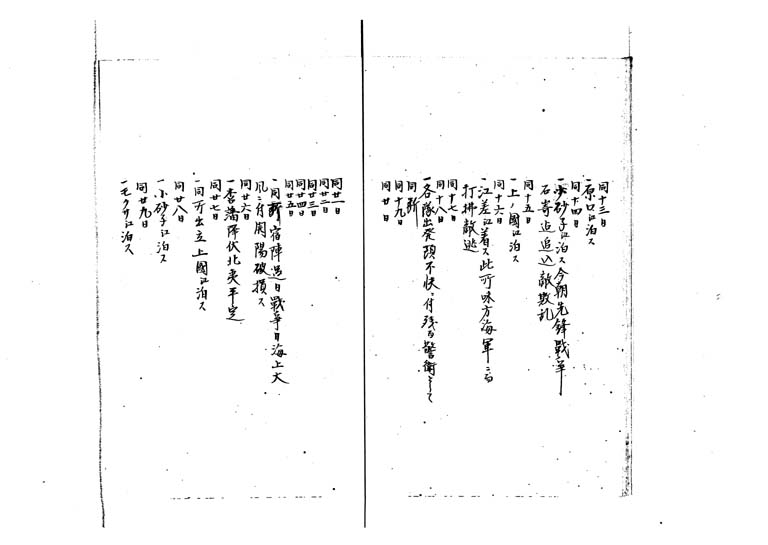 同十三日
一原口江泊ス
同十四日
一小砂子江泊ス今朝先鋒戦争
石寄迠追込敵敗乱
同十五日
一上ノ国江泊ス
同十六日
一江差江着ス此所味方海軍ニ而
打拂敵逃
同十七日
同十八日
一各隊出発頭不快ニ付残る警衛として
同断
同十九日
同廿日
同廿一日
同廿二日
同廿三日
同廿四日
同廿五日
一同所宿陣過日戦争日海上大
風ニ付開陽破損ス
同廿六日
一李藩降伏北夷平定
同廿七日
一同所出立上国江泊ス
同廿八日
一小砂子江泊ス
同廿九日
江泊ス